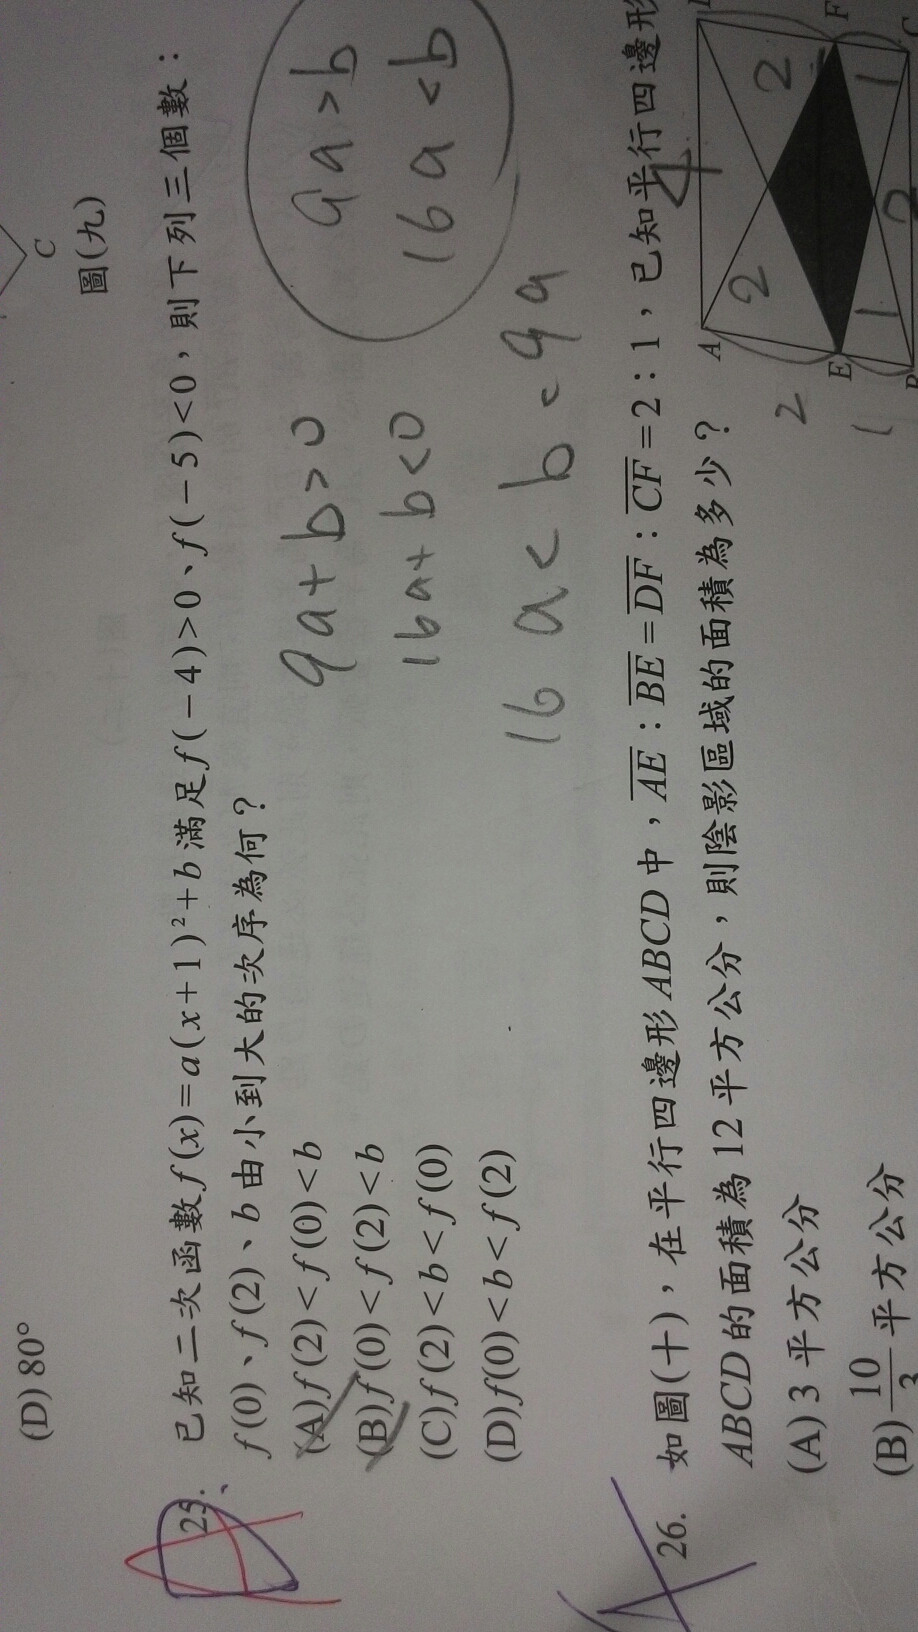 (D) 80°
C
圖(九)
25. 已知二次函數 f(x)=a(x+1)²+b 滿足 f(-4)>0、f(-5)<0，則下列三個數：
f(0)、f(2)、b 由小到大的次序為何？
(A) f(2)<f(0)<b
(B) f(0)<f(2)<b
(C) f(2)<b<f(0)
(D) f(0)<b<f(2)
9a+b>0
16a+b<0
9a>b
16a<b
16a<b<9a
26. 如圖(十)，在平行四邊形ABCD中，AE：BE=DF：CF=2：1，已知平行四邊形
ABCD的面積為12平方公分，則陰影區域的面積為多少？
(A) 3 平方公分
(B) 10/3 平方公分
4
A
E
F
2
2
2
1
1
1
2